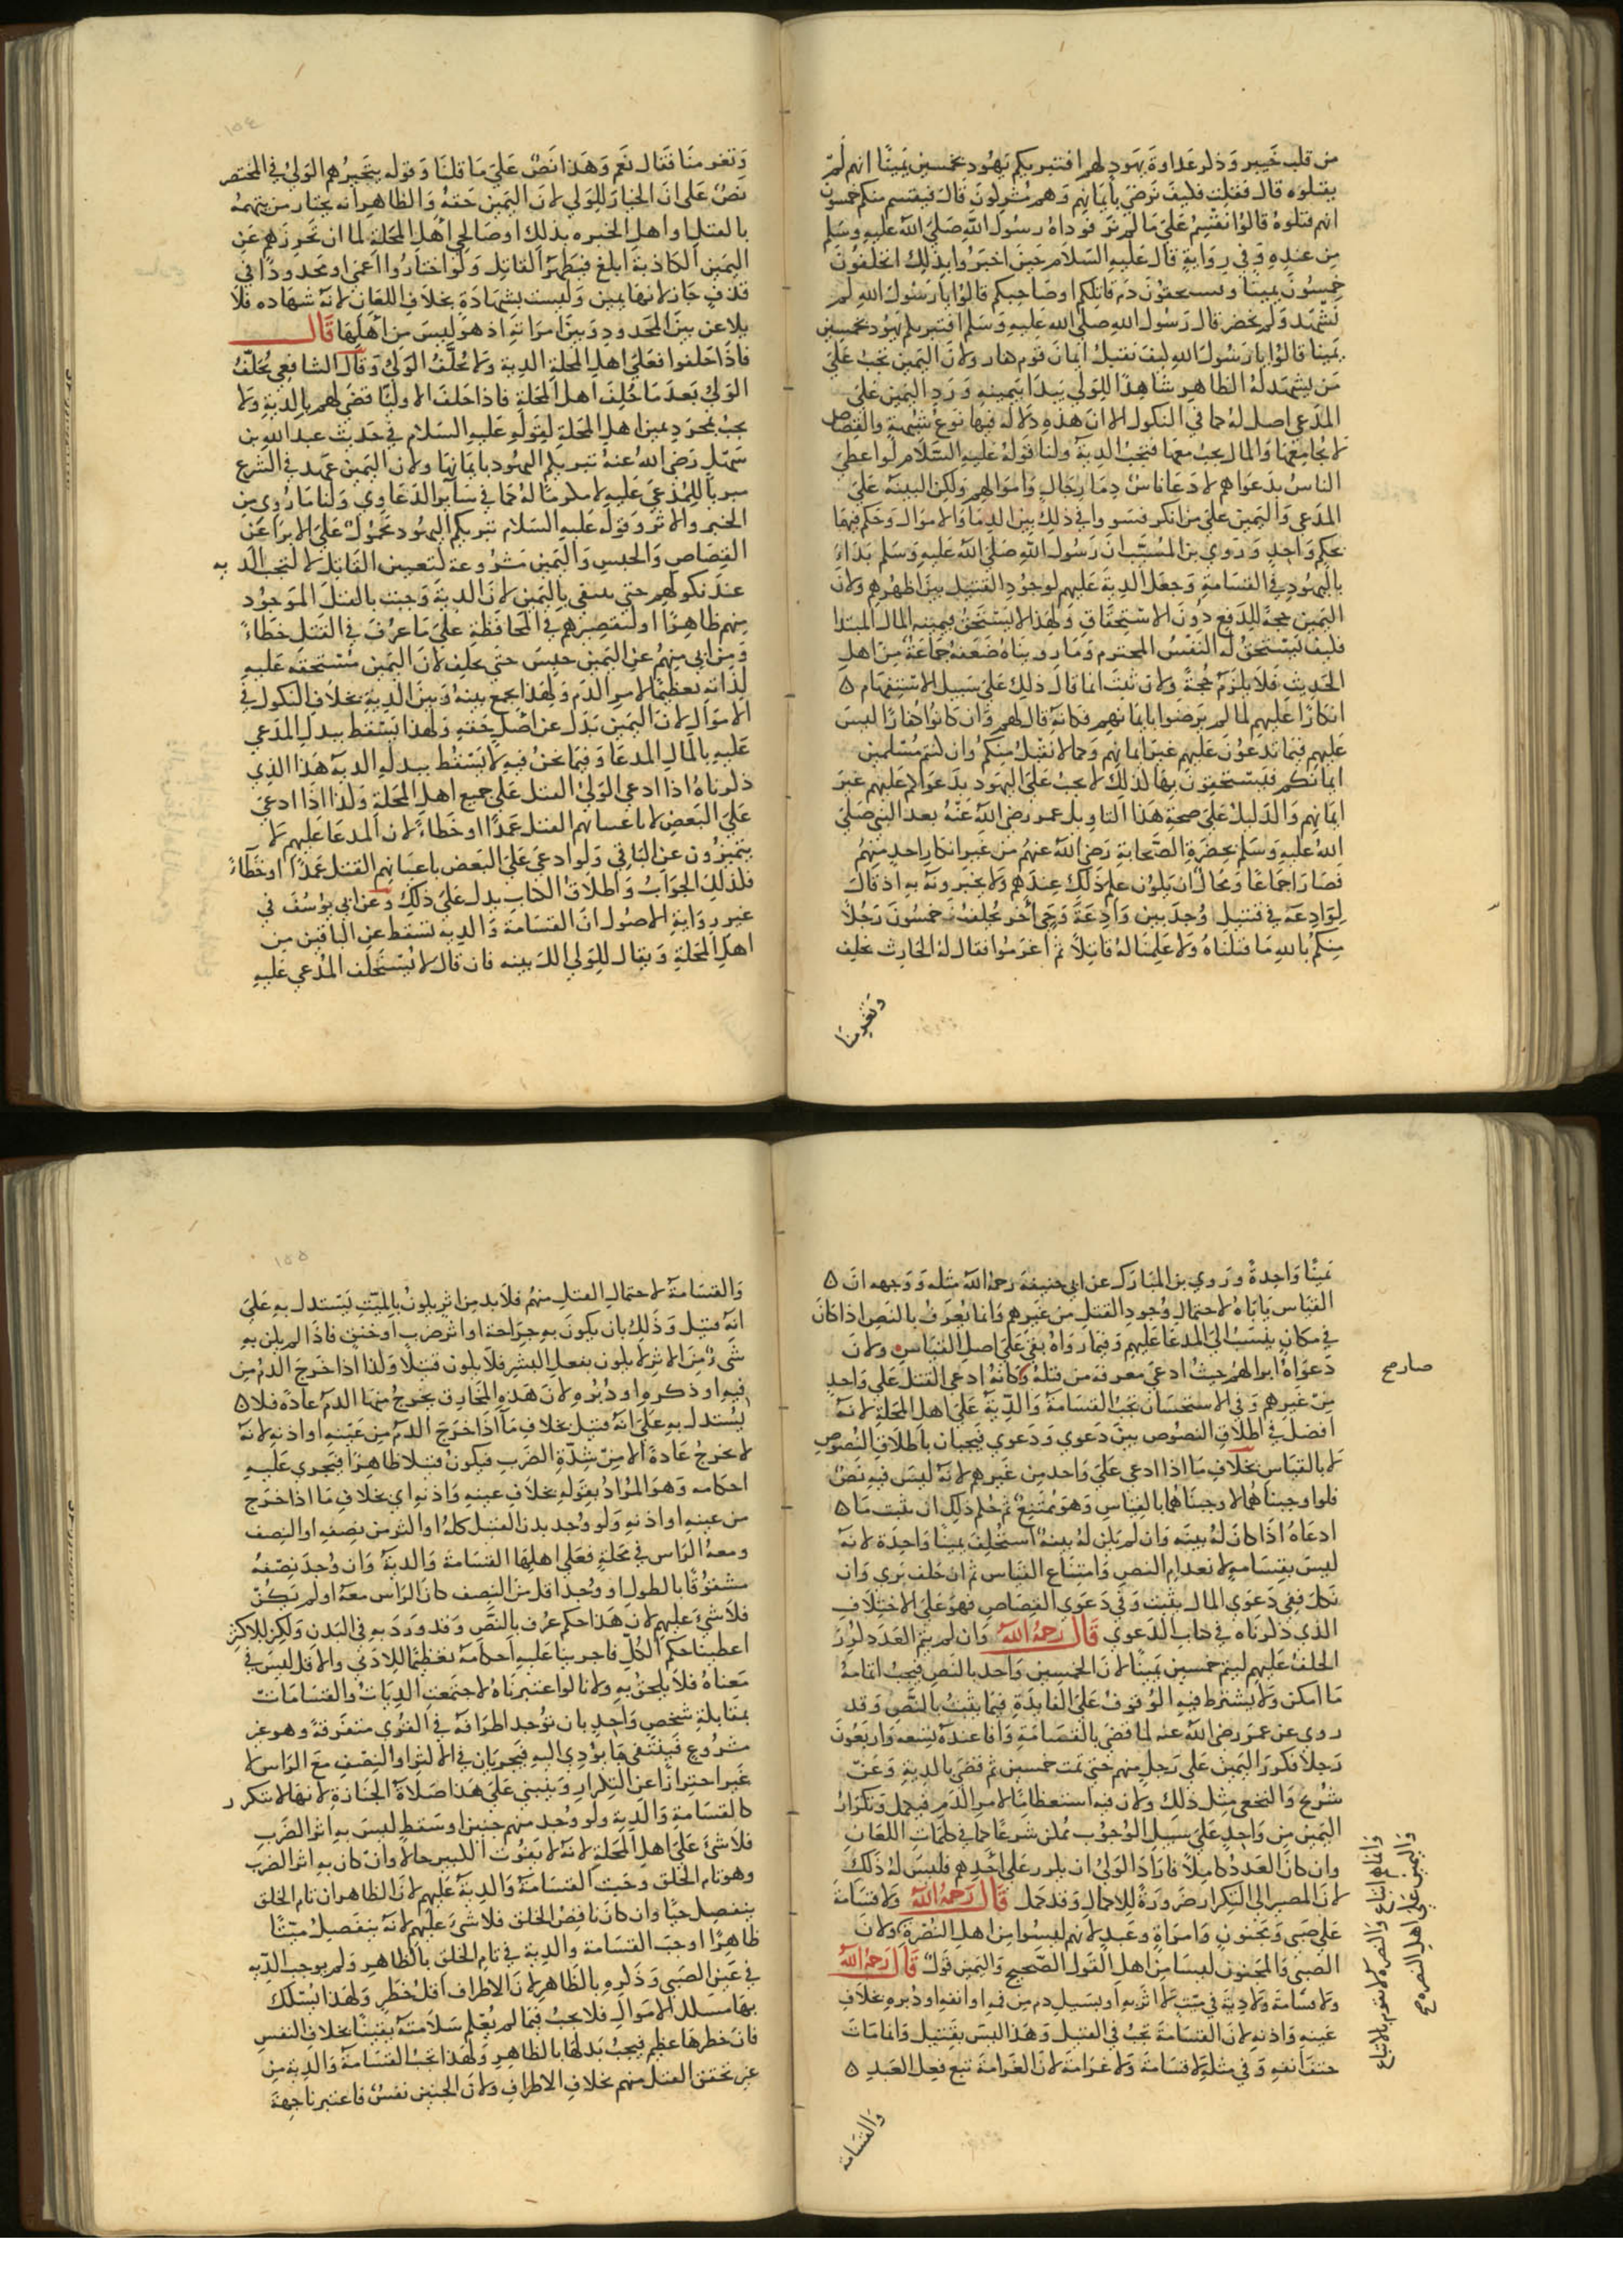 من قلب خيبر وذكر عداوة يهود لهم افتبريكم يهود بخمسين يمينا انهم لم
يقتلوه قال فقلت فكيف نرضي بأيمانهم وهم مشركون قال فيقسم منكم خمسون
انهم قتلوه قالوا نقسم على ما لم نر فوداه رسول الله صلى الله عليه وسلم
من عنده وفي رواية قال عليه السلام حين اخبروا بذلك اتحلفون
خمسون يمينا وتستحقون دم قاتلكم او صاحبكم قالوا يا رسول الله لم
نشهد ولم نحضر قال رسول الله صلى الله عليه وسلم افتبريكم يهود بخمسين
يمينا قالوا يا رسول الله كيف نقبل ايمان قوم كفار ولان اليمين تجب على
من يشهد له الظاهر شاهدا للولي يبدا بيمينه ورد اليمين على
المدعي اصل له كما في النكول الا ان هذه دلالة فيها نوع شبهة والقصاص
لا يجامعها والمال يجب معها فتجب الدية ولنا قوله عليه السلام لو اعطي
الناس بدعواهم لادعا ناس دما رجال واموالهم ولكن البينة على
المدعي واليمين على من انكر فسووا في ذلك بين الدما والاموال وحكم فيها
بحكم واحد وروي بن المسيب ان رسول الله صلى الله عليه وسلم بداء
باليهود في القسامة وجعل الدية عليهم لوجود القتيل بين اظهرهم ولان
اليمين حجة للدفع دون الاستحقاق ولهذا لا يستحق بيمينه المال المبتدا
فكيف يستحق له النفس المحترم وما رويناه ضعفه جماعة من اهل
الحديث فلا يلزم حجة ولان ثبت انما قال ذلك على سبيل الاستفهام ه
انكارا عليهم لما لم يرضوا بايمانهم فكانه قال لهم وان كانوا كفارا ليس
عليهم فيما تدعون عليهم غير ايمانهم وكما لا نقبل منكم وان كنتم مسلمين
ايمانكم فتستحقون بها كذلك لا يجب على اليهود بدعواكم عليهم غير
ايمانهم والدليل على صحة هذا التاويل عمر رضي الله عنه بعد النبي صلى
الله عليه وسلم بحضرة الصحابة رضي الله عنهم من غير انكار احد منهم
فصار اجماعا ومحال ان يكون علم ذلك عندهم ولا يخبرونه به اذ قال
لوادعة في قتيل وجد بين وادعة وحي اخر يحلف خمسون رجلا
منكم بالله ما قتلناه ولا علمنا له قاتلا ثم اغرموا فقال له الحارث نحلف
وتغرمنا
١٥٤
وتغرمنا فقال نعم وهذا نص على ما قلنا وقوله يتخيرهم الولي في المختصر
نص على ان الخيار للولي لان اليمين حقه والظاهر انه يختار من يتهمه
بالقتل او اهل الخبره بذلك او صالحي اهل المحلة لما ان تحرزهم عن
اليمين الكاذبة ابلغ فيظهر القاتل ولو اختاروا اعمى او محدودا في
قذف جاز لانها يمين وليست بشهادة بخلاف اللعان لانه شهاده فلا
يلاعن بين المحدود وبين امراته اذ هو ليس من اهلها قال
فاذا حلفوا فعلى اهل المحلة الدية ولا يحلف الولي وقال الشافعي يحلف
الولي بعد ما حلف اهل المحلة فاذا حلف الاوليا قضي لهم بالدية ولا
يجب بمجرد يمين اهل المحلة لقوله عليه السلام في حديث عبد الله بن
سهل رضي الله عنه تبريكم اليهود بايمانها ولان اليمين عهد في الشرع
مبريا للمدعي عليه لا ملزما له كما في ساير الدعاوي ولنا ما روي من
الخبر والاثر وقوله عليه السلام تبريكم اليهود محمول على الابرا عن
القصاص والحبس واليمين مشروعة لتعيين القاتل لا لتجب الديه
عند نكولهم حتى يسقي باليمين لان الدية وجبت بالقتل الموجود
منهم ظاهرا او لتقصيرهم في المحافظة على ما عرف في القتل خطاء
ومن ابي منهم عن اليمين حبس حتى يحلف لان اليمين مستحقه عليه
لذاته تعظيما لامر الدم ولهذا يجمع بينه وبين الدية بخلاف النكول في
الاموال لان اليمين بدل عن اصل حقه ولهذا يسقط ببدل المدعي
عليه بالمال المدعا وفيما نحن فيه لا يسقط ببدله الدية هذا الذي
ذكرناه اذا ادعي الولي القتل على جميع اهل المحلة وكذا اذا ادعي
على البعض لا باعيانهم القتل عمدا او خطاء لان المدعا عليهم لا
يتميزون عن الباقي ولو ادعي على البعض باعيانهم القتل عمدا او خطاء
فكذلك الجواب واطلاق الكتاب يدل على ذلك وعن ابي يوسف في
غير رواية الاصول ان القسامة والدية تسقط عن الباقين من
اهل المحلة ويقال للولي الك بينه فان قال لا يستحلف المدعي عليه
يمينا واحدة وروي بن المبارك عن ابي حنيفة رحمه الله مثله ووجهه ان ه
القياس ياباه لاحتمال وجود القتل من غيرهم وانما يعرف بالنص اذا كان
في مكان ينسب الى المدعا عليهم وفيما رواه بقي على اصل القياس ولان
دعواه ابراهم حيث ادعي معرفة من قتله وكانه ادعي القتل على واحد
من غيرهم وفي الاستحسان تجب القسامة والدية على اهل المحلة لانه
افصل في اطلاق النصوص بين دعوي ودعوي فيجبان باطلاق النصوص
لا بالقياس بخلاف ما اذا ادعي على واحد من غيرهم لانه ليس فيه نص
فلو اوجبناهما لاوجبناهما بالقياس وهو ممتنع ثم حكم ذلك ان يثبت ما ه
ادعاه اذا كان له بينة وان لم يكن له بينة استحلف يمينا واحدة لانه
ليس بقسامة لانعدام النص وامتناع القياس ثم ان حلف بري وان
نكل ففي دعوي المال يثبت وفي دعوي القصاص فهو على الاختلاف
الذي ذكرناه في كتاب الدعوي قال رحمه الله وان لم يتم العدد كرر
الحلف عليهم ليتم خمسين يمينا لان الخمسين واحد بالنص فيجب اتمامه
ما امكن ولا يشترط فيه الوقوف على الفايدة فيما يثبت بالنص وقد
روي عن عمر رضي الله عنه لما قضي بالقصامة وافا عنده تسعة واربعون
رجلا فكرر اليمين على رجل منهم حتى تمت خمسين ثم قضى بالدية وعن
شريح والنخعي مثل ذلك ولان فيه استعظاما لامر الدم فيكمل وتكرار
اليمين من واحد على سبيل الوجوب ممكن شرعا كما في كلمات اللعان
وان كان العدد كاملا فاراد الولي ان يكرر على احدهم فليس له ذلك
لان المصير الى التكرار ضرورة للاكمال وقد كمل قال رحمه الله ولا قسامة
على صبي ومجنون وامراة وعبد لانهم ليسوا من اهل النصرة ولان
الصبي والمجنون ليسا من اهل القول الصحيح واليمين قول قال رحمه الله
ولا قسامة ولا دية في ميت لا اثر به او يسيل دم من فمه او انفه او دبره بخلاف
عينه واذنه لان القسامة تجب في القتيل وهذا ليس بقتيل وانما مات
حتف انفه وفي مثله لا قسامة ولا غرامة لان الغرامة تتبع فعل العبد ه
والقسامة
صار صح
وانما هم اتباع والنصره لا تقوم بالاتباع
واليمين على اهل النصره صح
١٥٥
والقسامة لاحتمال القتل منهم فلا بد من اثر يكون بالميت ليستدل به على
انه قتيل وذلك بان يكون به جراحة او اثر ضرب او خنق فاذا لم يكن به
شيء من الاثر لا يكون بفعل البشر فلا يكون قتيلا وكذا اذا خرج الدم من
فيه او ذكره او دبره لان هذه المخارق يخرج منها الدم عادة فلا ه
يستدل به على انه قتيل بخلاف ما اذا خرج الدم من عينه او اذنه لانه
لا يخرج عادة الا من شدة الضرب فيكون قتيلا ظاهرا فيجري عليه
احكامه وهو المراد بقوله بخلاف عينه واذنه اي بخلاف ما اذا خرج
من عينه او اذنه ولو وجد بدن القتيل كله او اكثر من نصفه او النصف
ومعه الراس في محلة فعلى اهلها القسامة والدية وان وجد نصفه
مشقوقا بالطول او وجد اقل من النصف كان الراس معه او لم يكن
فلا شيء عليهم لان هذا حكم عرف بالنص وقد ورد به في البدن ولكن للاكثر
اعطينا حكم الكل فاجرينا عليه احكامه تعظيما للادمي والاقل ليس في
معناه فلا يلحق به ولانا لو اعتبرناه لاجتمعت الديات والقسامات
بمقابلة شخص واحد بان توجد اطرافه في القرى متفرقة وهو غير
مشروع فينتفي ما يؤدي اليه فيجريان في الاكثر او النصف مع الراس لا
غير احترازا عن التكرار وينبني على هذا صلاة الجنازة لانها لا تتكرر
كالقسامة والدية ولو وجد منهم جنين او سقط ليس به اثر الضرب
فلا شيء على اهل المحلة لانه لا يفوت الكبير حالا وان كان به اثر الضرب
وهو تام الخلق وجبت القسامة والدية عليهم لان الظاهر ان تام الخلق
ينفصل حيا وان كان ناقص الخلق فلا شيء عليهم لانه ينفصل ميتا
ظاهرا اوجب القسامة والدية في تام الخلق بالظاهر ولم يوجب الديه
في عين الصبي وذكره بالظاهر لان الاطراف اقل خطر ولهذا يسلك
بها مسلك الاموال فلا يجب فيما لم يعلم سلامته يقينا بخلاف النفس
فان خطرها عظيم فيجب بدلها بالظاهر ولهذا تجب القسامة والدية من
غير تحقق القتل منهم بخلاف الاطراف ولان الجنين نفس فاعتبرنا جهة